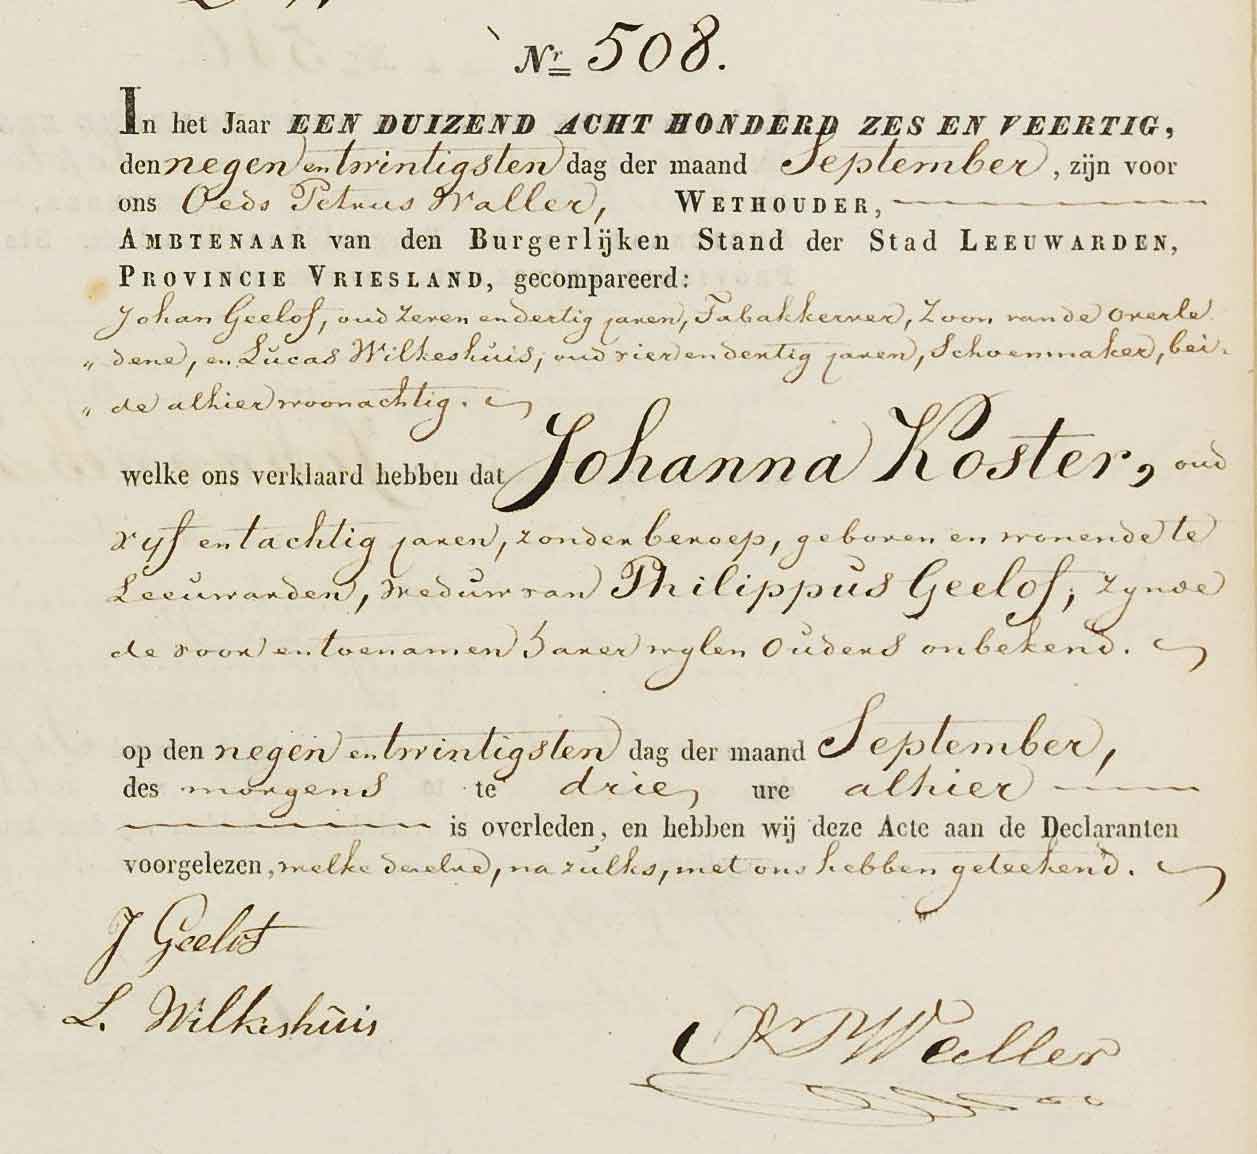 Nr. 508.
In het Jaar EEN DUIZEND ACHT HONDERD ZES EN VEERTIG,
den negen en twintigsten dag der maand September, zijn voor
ons Oeds Petrus Waller, WETHOUDER,
AMBTENAAR van den Burgerlijken Stand der Stad LEEUWARDEN,
PROVINCIE VRIESLAND, gecompareerd:
Johan Geelof, oud zeven en dertig jaren, Tabakkerver, Zoon van de overle
„ dene, en Lucas Wilkeshuis, oud vier en dertig jaren, Schoenmaker, bei-
„ de alhier woonachtig.
welke ons verklaard hebben dat Johanna Koster, oud
vyf en tachtig jaren, zonder beroep, geboren en wonende te
Leeuwarden, weduw van Philippus Geelof, zynde
de voor en toenamen harer wylen Ouders onbekend.
op den negen en twintigsten dag der maand September,
des morgens te drie ure alhier
is overleden, en hebben wij deze Acte aan de Declaranten
voorgelezen, welke dezelve, na zulks, met ons hebben geteekend.
J Geelof
L. Wilkeshuis
Waller